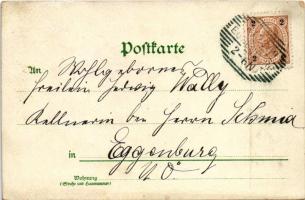 Postkarte
An Wohlgeborene
Freilen Hedwig Wally
Kellnerin bei Herrn Schmid
in Eggenburg
N. Ö.
Wohnung
(Straße und Hausnummer)
2 2
2 2